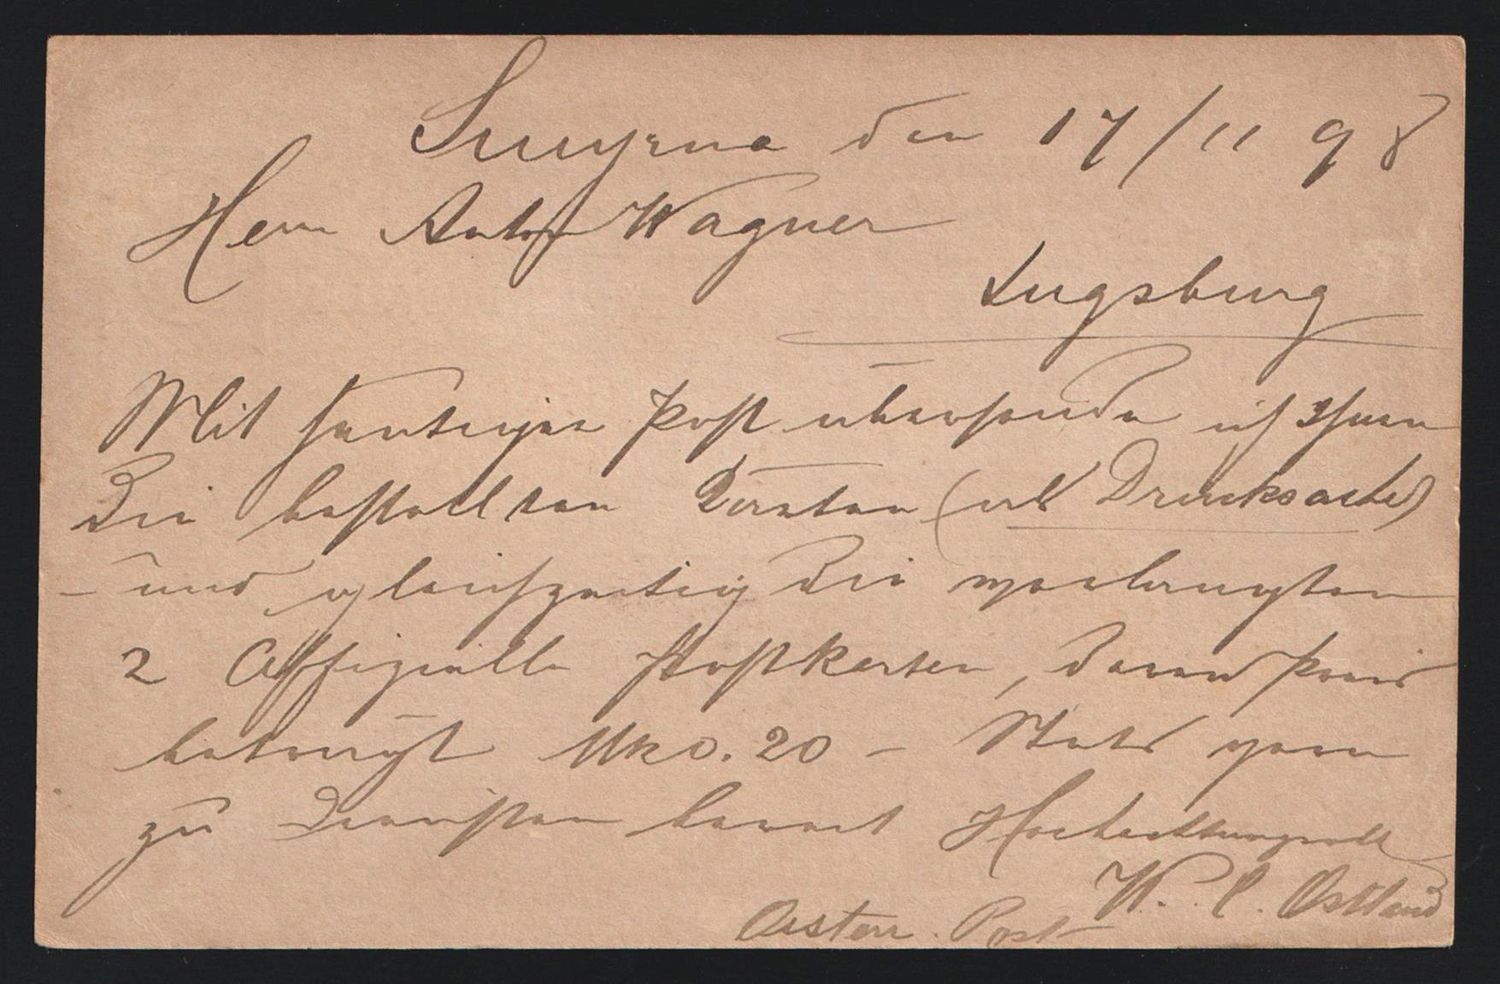 Smyrna den 17/11 98
Herrn Anton Wagner
Augsburg
Mit heutiger Post übersende ich Ihnen
die bestellten Karten (als Drucksache)
- und gleichzeitig die verlangten
2 Offizielle Postkarten, deren Preis
beträgt Mk 0.20 - Stets gern
zu Diensten bereit Hochachtungsvoll
W. C. Ostland
Oesterr. Post